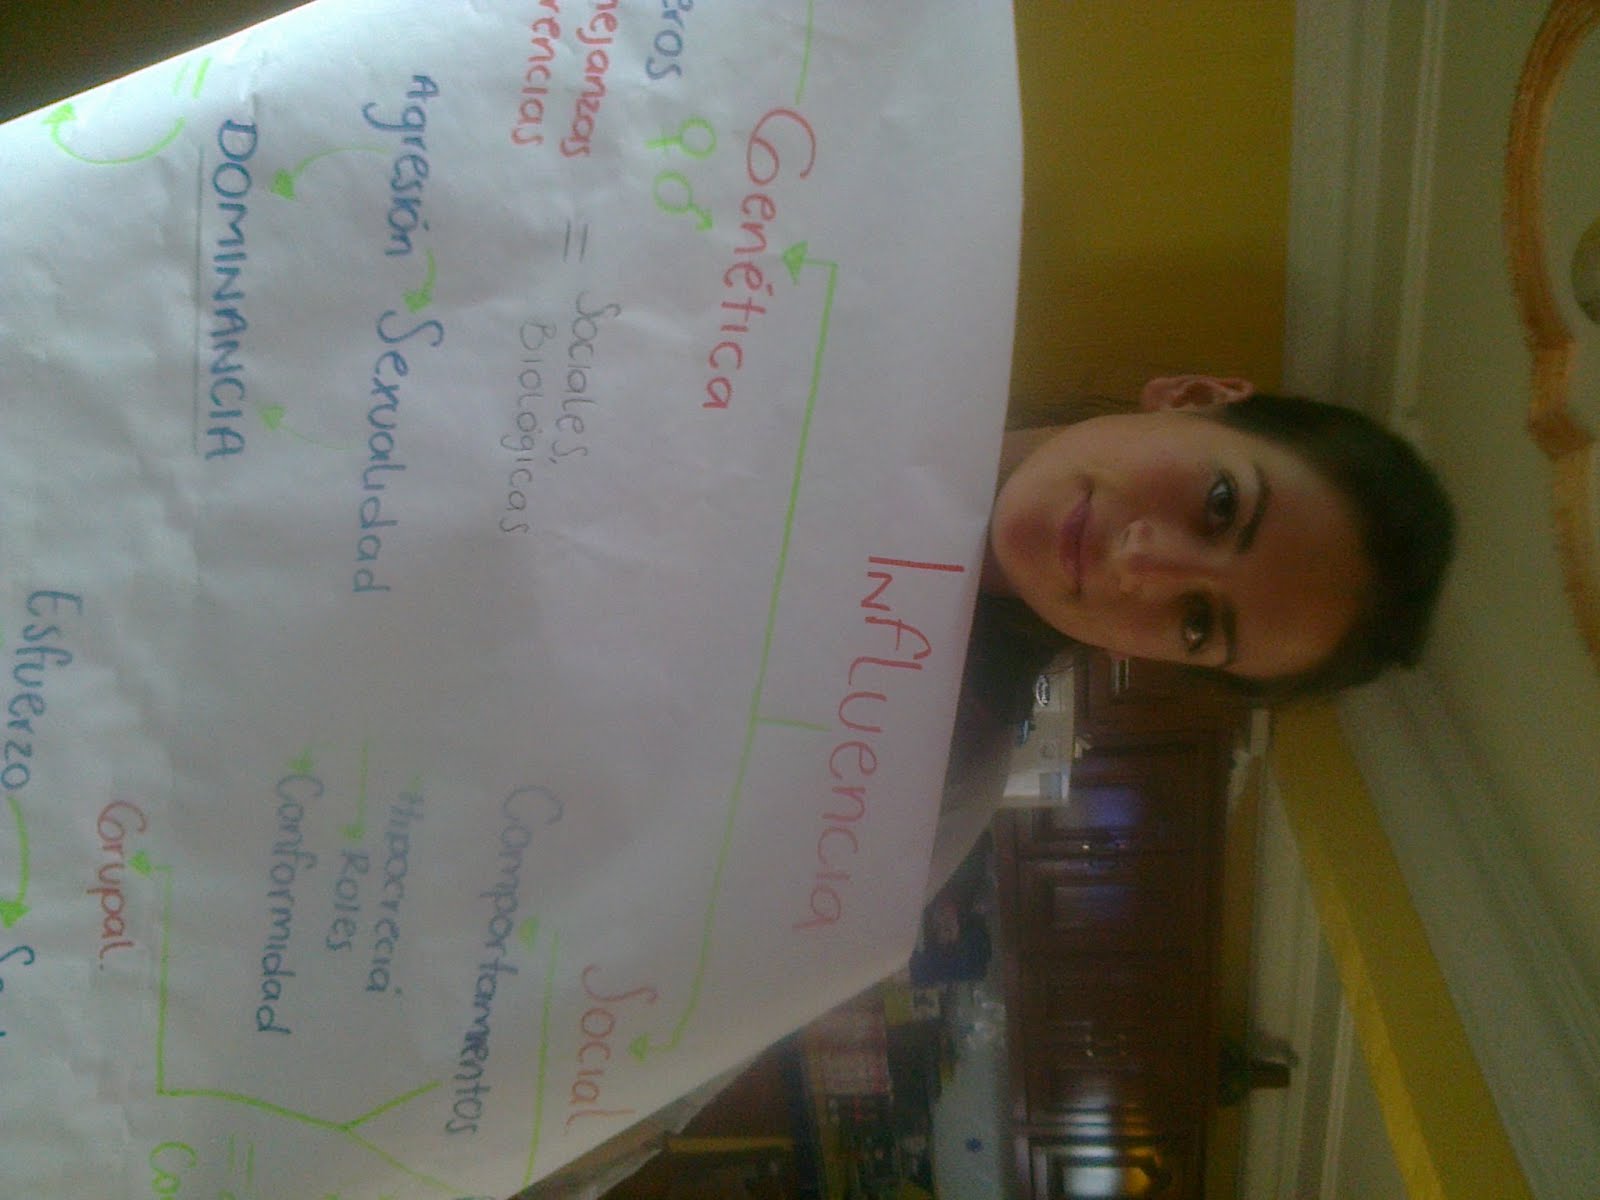 Influencia
Genética
Social
eros ♀ ♂
nejanzas = Sociales,
rencias Biológicas
Comportamientos
Agresión Sexualidad
Hipocrecia
Roles
Conformidad
= DOMINANCIA
Grupal.
Esfuerzo